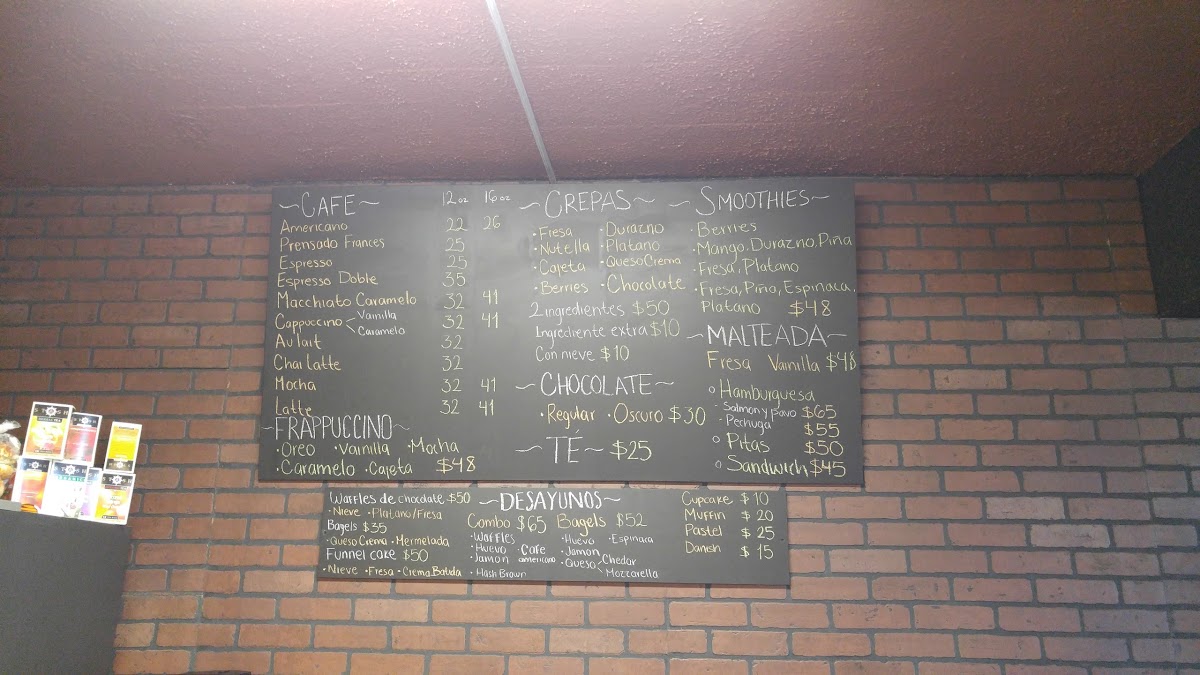 ~CAFE~ 12oz 16oz
Americano 22 26
Prensado Frances 25
Espresso 25
Espresso Doble 35
Macchiato Caramelo 32 41
Cappuccino < Vainilla 32 41
Caramelo
Au lait 32
Chai latte 32
Mocha 32 41
Latte 32 41
~FRAPPUCCINO~
·Oreo ·Vainilla ·Mocha
·Caramelo ·Cajeta $48
~CREPAS~
·Fresa ·Durazno
·Nutella ·Platano
·Cajeta ·Queso Crema
·Berries ·Chocolate
2 ingredientes $50
Ingrediente extra $10
Con nieve $10
~CHOCOLATE~
·Regular ·Oscuro $30
~TÉ~ $25
~SMOOTHIES~
·Berries
·Mango, Durazno, Piña
·Fresa, Platano
·Fresa, Piña, Espinaca,
Platano $48
~MALTEADA~
Fresa Vainilla $48
○ Hamburguesa
- Salmon y pavo $65
- Pechuga $55
○ Pitas $50
○ Sandwich $45
Waffles de chocolate $50
·Nieve ·Platano/Fresa
Bagels $35
·Queso Crema ·Mermelada
Funnel cake $50
·Nieve ·Fresa ·Crema Batida
~DESAYUNOS~
Combo $65 Bagels $52
·Waffles ·Huevo ·Espinaca
·Huevo ·Cafe americano ·Jamon
·Jamon ·Queso < Chedar
·Hash Brown Mozzarella
Cupcake $10
Muffin $20
Pastel $25
Danish $15
STASH